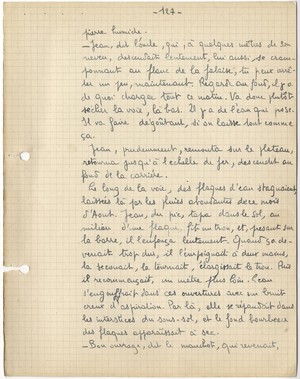 - 127 -
pierre humide.
- Jean, dit l'oncle, qui, à quelques mètres de son
neveu, descendait lentement, lui aussi, se cram-
ponnant au flanc de la falaise, tu peux arrê-
ter un peu, maintenant. Regarde au fond, il y a
de quoi charger tout ce matin. Va donc plutôt
sécher la voie, là-bas. Il y a de l'eau que
Il va faire dégoûtant, si on laisse tout comme
ça.
Jean, prudemment, remonta sur le plateau,
retourna jusqu'à l'échelle de fer, descendit au
fond de la carrière.
Le long de la voie, des flaques d'eau stagnaient,
laissées là par les pluies abondantes de ce mois
d'Août. Jean, du pic, tapa dans le sol, au
milieu d'une flaque, fit un trou, et, pesant sur
la barre, il l'enfonça lentement. Quand ça de-
venait trop dur, il l'empoignait à deux mains,
la secouait, la tournait, élargissait le trou. Puis
il recommençait, un mètre plus loin. L'eau
s'engouffrait dans ces ouvertures avec un bruit
creux d'aspiration. Par là, elle se répandait dans
les interstices du sous-sol, et le fond bourbeux
des flaques apparaissait à sec.
- Bon ouvrage, dit le manchot, qui revenait,